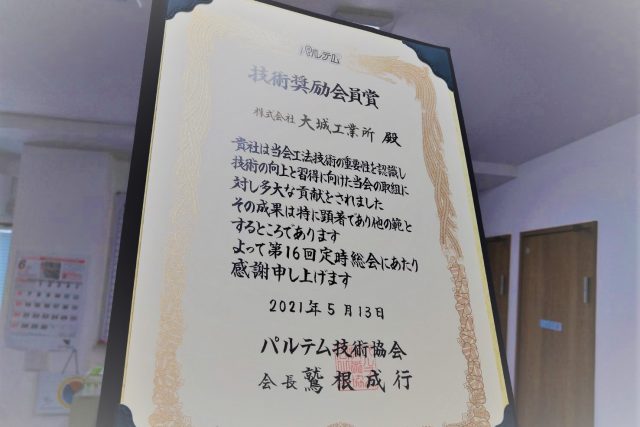 パルテム
技術奨励会員賞
株式会社 大城工業所 殿
貴社は当会工法技術の重要性を認識し
技術の向上と習得に向けた当会の取組に
対し多大な貢献をされました
その成果は特に顕著であり他の範と
するところであります
よって第16回定時総会にあたり
感謝申し上げます
2021年5月13日
パルテム技術協会
会長 鷲根成行